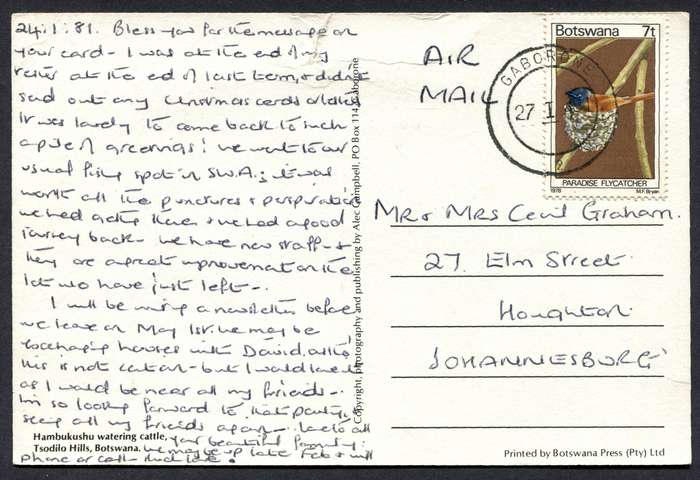 24.1.81. Bless you for the message on
your card - I was at the end of my
at the end of last term, & didn't
send out any Christmas cards or letters
It was lovely to come back to such
a pile of greetings! We went to our
usual fishing spot in S.W.A.; it was
worth all the punctures & perspiration
we had getting there & we had a good
journey back - we have new staff - &
they are a great improvement on the
lot who have just left -.
I will be writing a newsletter before
we leave on May 1st. We may be
exchanging houses with David, altho'
this is not certain - but I would love it
as I would be near all my friends -.
I'm so looking forward to that party, &
seeing all my friends again -. Love to all
your beautiful family:
we may be up late Feb & will
phone or call - much love.
Hambukushu watering cattle,
Tsodilo Hills, Botswana.
Copyright, photography and publishing by Alec Campbell, PO Box 114, Gaborone
AIR
MAIL
GABORONE
27 I
Botswana 7t
PARADISE FLYCATCHER
1978 M.F. Bryan
Mr & Mrs Cecil Graham.
27 Elm Street
Houghton
JOHANNESBURG
Printed by Botswana Press (Pty) Ltd